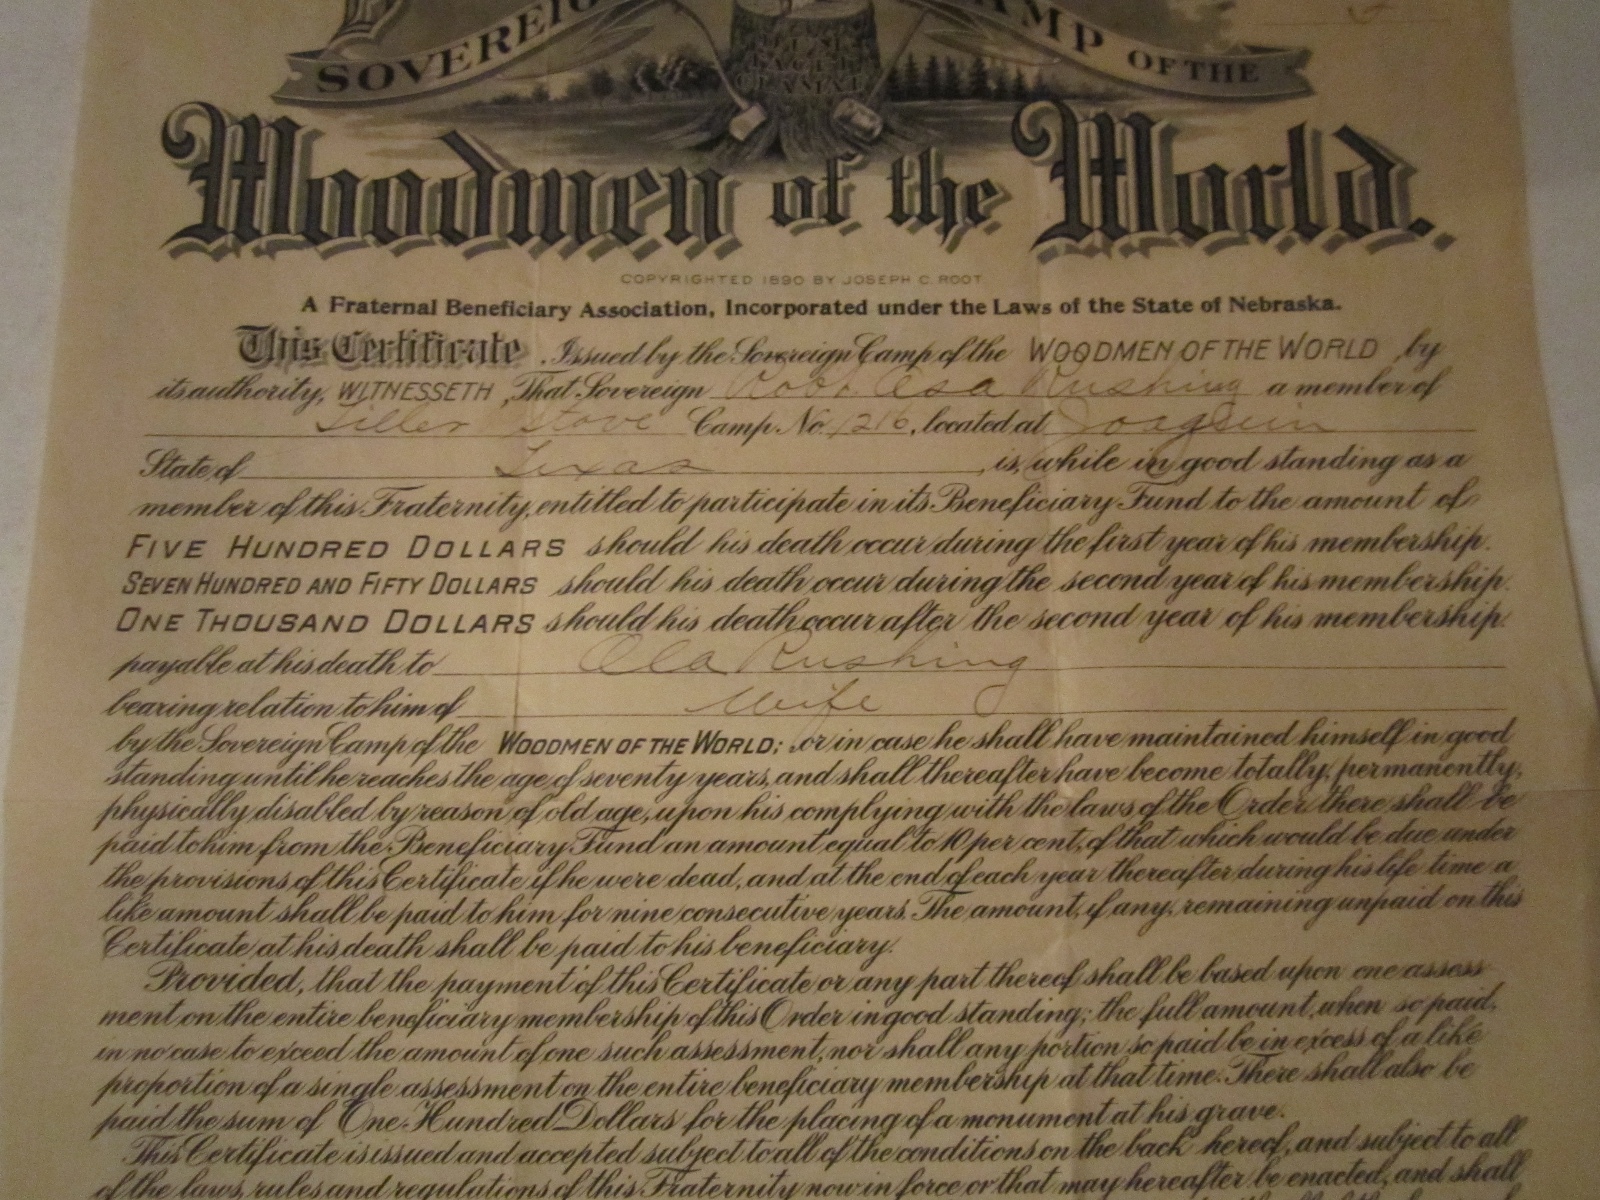 SOVEREIGN CAMP OF THE
Woodmen of the World.
COPYRIGHTED 1890 BY JOSEPH C. ROOT
A Fraternal Beneficiary Association, Incorporated under the Laws of the State of Nebraska.
This Certificate, Issued by the Sovereign Camp of the WOODMEN OF THE WORLD, by
its authority, WITNESSETH, That Sovereign Robt. Asa Rushing a member of
Camp No. 1216, located at Joaquin
State of Texas, is, while in good standing as a
member of this Fraternity, entitled to participate in its Beneficiary Fund to the amount of
FIVE HUNDRED DOLLARS should his death occur during the first year of his membership.
SEVEN HUNDRED AND FIFTY DOLLARS should his death occur during the second year of his membership.
ONE THOUSAND DOLLARS should his death occur after the second year of his membership.
payable at his death to Ola Rushing
bearing relation to him of Wife
by the Sovereign Camp of the WOODMEN OF THE WORLD; or in case he shall have maintained himself in good
standing until he reaches the age of seventy years, and shall thereafter have become totally, permanently,
physically disabled by reason of old age, upon his complying with the laws of the Order there shall be
paid to him from the Beneficiary Fund an amount equal to 10 per cent, of that which would be due under
the provisions of this Certificate if he were dead, and at the end of each year thereafter during his life time a
like amount shall be paid to him for nine consecutive years. The amount, if any, remaining unpaid on this
Certificate at his death shall be paid to his beneficiary.
Provided, that the payment of this Certificate or any part thereof shall be based upon one assess
ment on the entire beneficiary membership of this Order in good standing; the full amount, when so paid,
in no case to exceed the amount of one such assessment, nor shall any portion so paid be in excess of a like
proportion of a single assessment on the entire beneficiary membership at that time. There shall also be
paid the sum of One Hundred Dollars for the placing of a monument at his grave.
This Certificate is issued and accepted subject to all of the conditions on the back hereof, and subject to all
of the laws, rules and regulations of this Fraternity now in force or that may hereafter be enacted, and shall